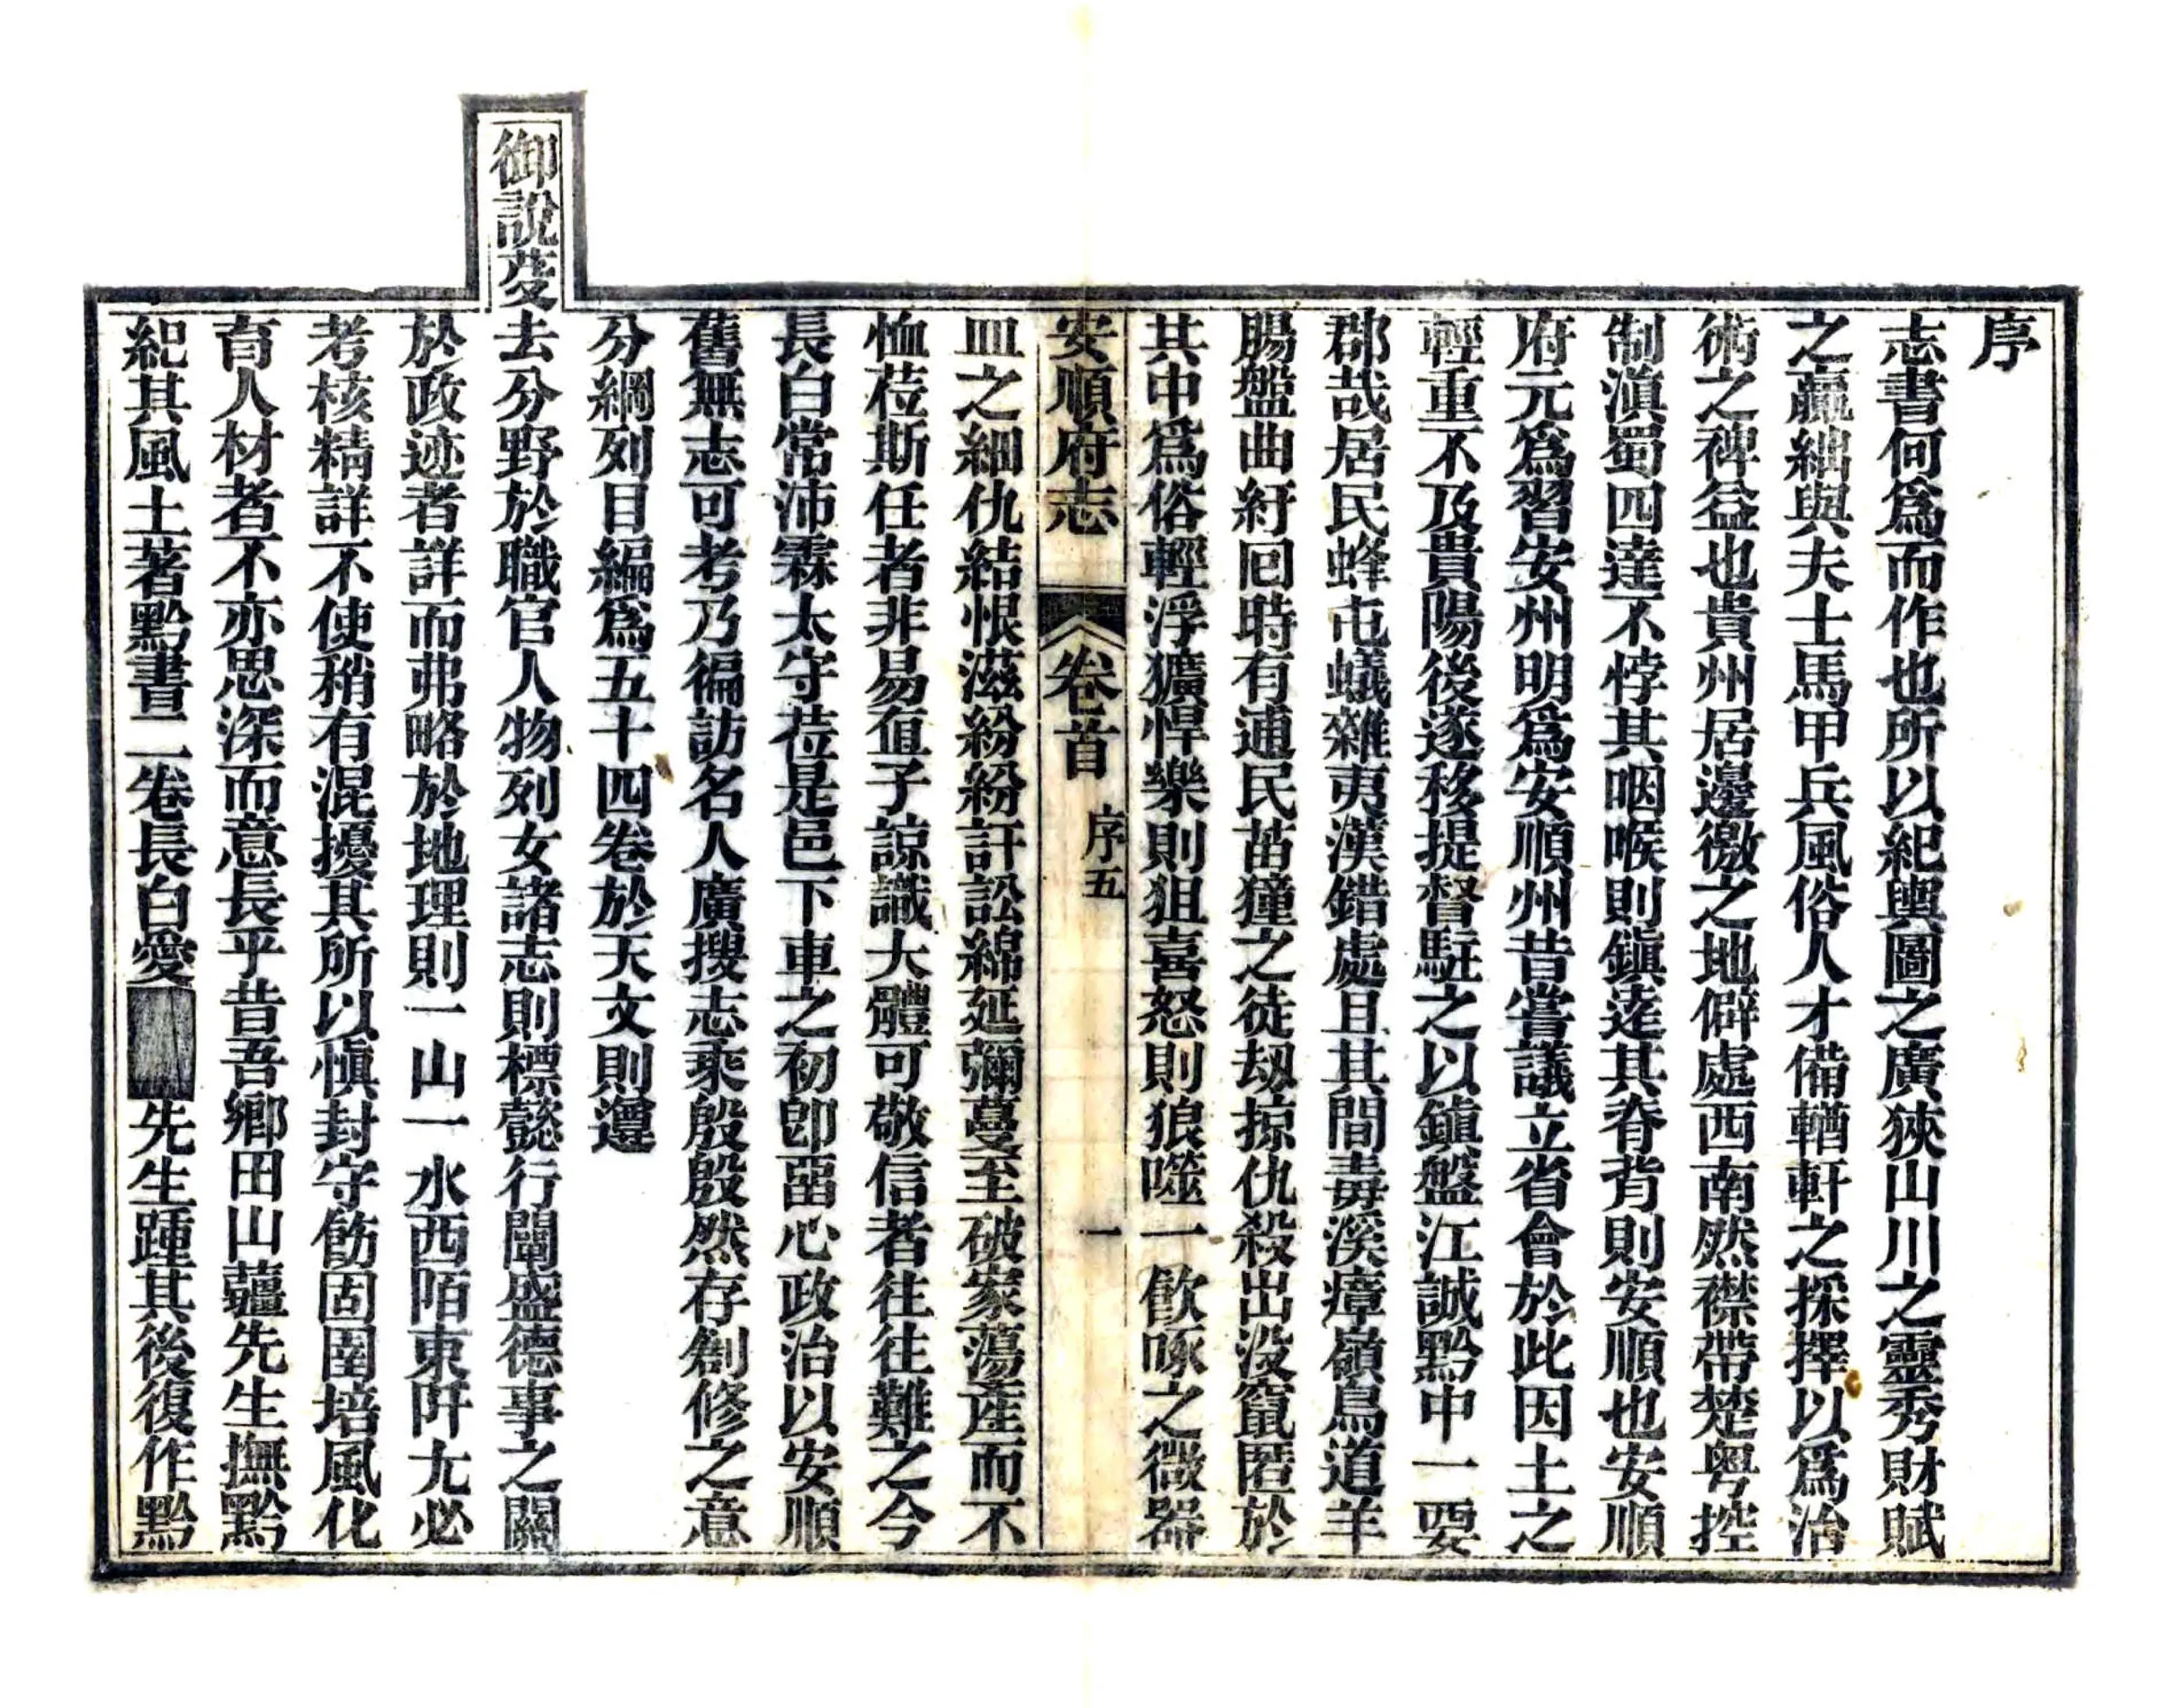 序
志書何爲而作也所以紀輿圖之廣狹山川之靈秀財賦
之贏絀與夫士馬甲兵風俗人才備輶軒之採擇以爲治
術之裨益也貴州居邊徼之地僻處西南然襟帶楚粵控
制滇蜀四達不悖其咽喉則鎮逺其脊背則安順也安順
府元爲習安州明爲安順州昔嘗議立省會於此因土之
輕重不及貴陽後遂移提督駐之以鎮盤江誠黔中一要
郡哉居民蜂屯蟻雜夷漢錯處且其間毒溪瘴嶺鳥道羊
腸盤曲紆回時有逋民苗獞之徒刼掠仇殺出没竄匿於
其中爲俗輕浮獷悍樂則狙喜怒則狼噬一飲啄之微器
安順府志
卷首
序五
一
皿之細仇結恨滋紛紛訐訟綿延彌蔓至破家蕩產而不
恤莅斯任者非易亶子諒識大體可敬信者往往難之今
長白常沛霖太守莅是邑下車之初卽畱心政治以安順
舊無志可考乃徧訪名人廣搜志乘殷殷然存創修之意
分綱列目編爲五十四卷於天文則遵
御說芟去分野於職官人物列女諸志則標懿行闡盛德事之關
於政迹者詳而弗略於地理則一山一水西陌東阡尢必
考核精詳不使稍有混擾其所以愼封守飭固圉培風化
育人材者不亦思深而意長乎昔吾鄉田山薑先生撫黔
紀其風土著黔書二卷長白愛 先生踵其後復作黔